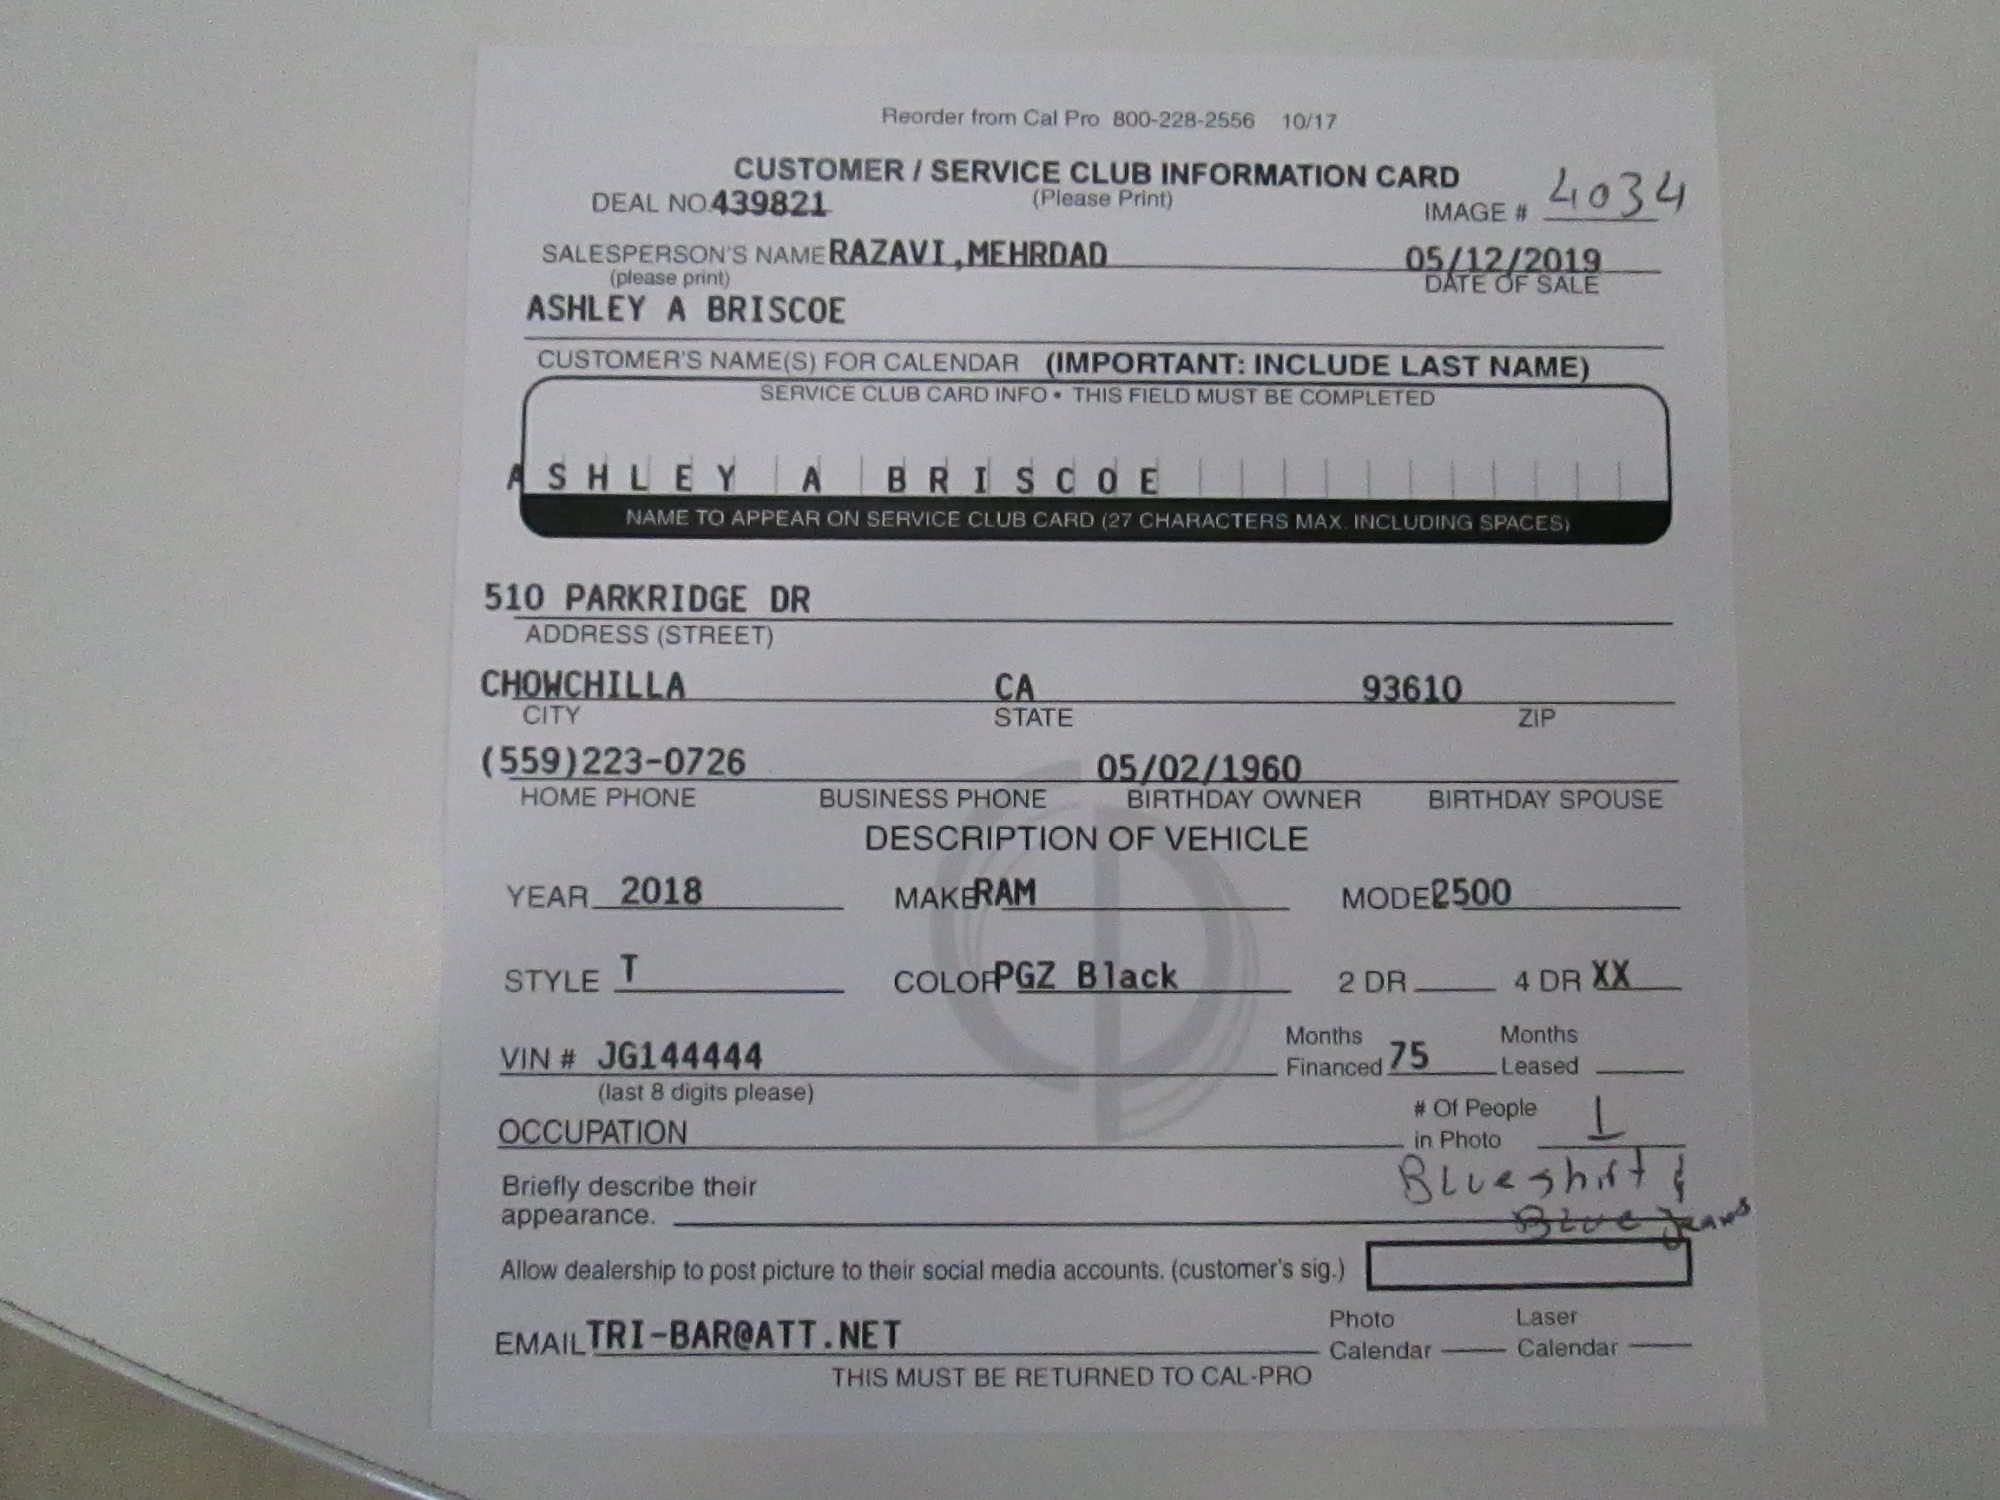 Reorder from Cal Pro 800-228-2556 10/17
CUSTOMER / SERVICE CLUB INFORMATION CARD
DEAL NO. 439821 (Please Print) IMAGE # 4034
SALESPERSON'S NAME RAZAVI,MEHRDAD 05/12/2019
(please print) DATE OF SALE
ASHLEY A BRISCOE
CUSTOMER'S NAME(S) FOR CALENDAR (IMPORTANT: INCLUDE LAST NAME)
SERVICE CLUB CARD INFO • THIS FIELD MUST BE COMPLETED
ASHLEY A BRISCOE
NAME TO APPEAR ON SERVICE CLUB CARD (27 CHARACTERS MAX. INCLUDING SPACES)
510 PARKRIDGE DR
ADDRESS (STREET)
CHOWCHILLA CA 93610
CITY STATE ZIP
(559)223-0726 05/02/1960
HOME PHONE BUSINESS PHONE BIRTHDAY OWNER BIRTHDAY SPOUSE
DESCRIPTION OF VEHICLE
YEAR 2018 MAKE RAM MODEL 2500
STYLE T COLOR PGZ Black 2 DR 4 DR XX
VIN # JG144444 Months Financed 75 Months Leased
(last 8 digits please)
OCCUPATION # Of People in Photo 1
Briefly describe their appearance. Blue shirt & Blue Jeans
Allow dealership to post picture to their social media accounts. (customer's sig.)
EMAIL TRI-BAR@ATT.NET Photo Calendar Laser Calendar
THIS MUST BE RETURNED TO CAL-PRO